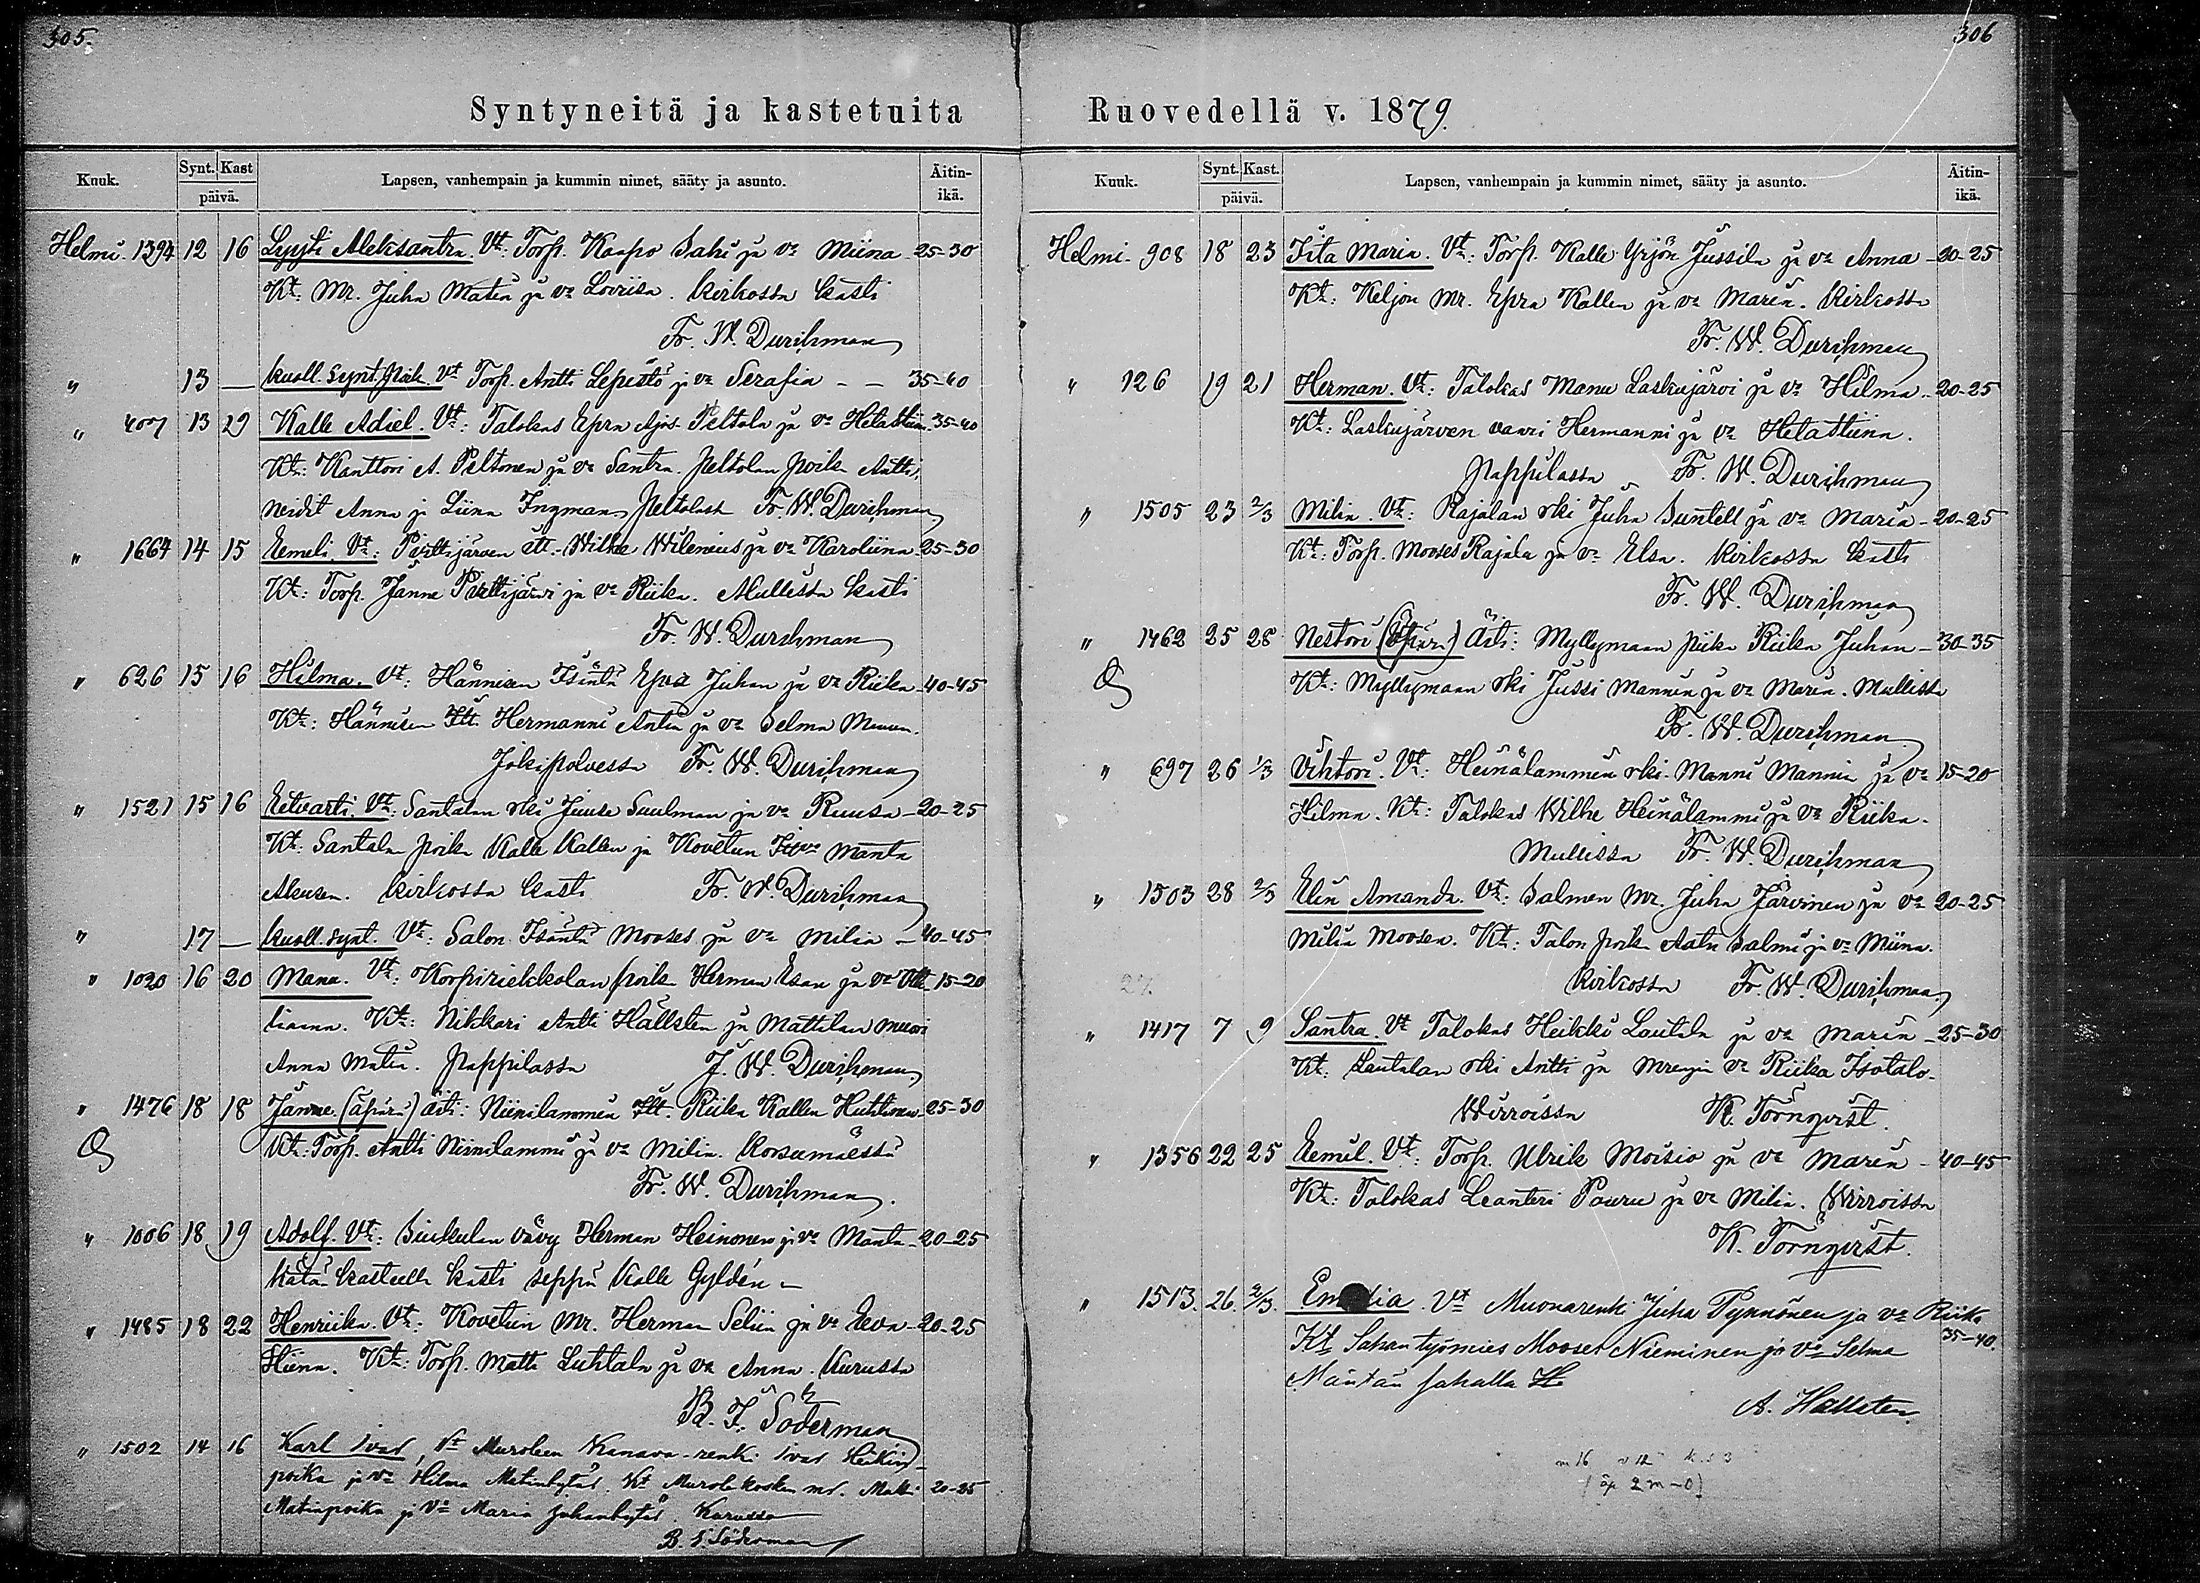 305.
Syntyneitä ja kastetuita
Kuuk. Synt. Kast päivä. Lapsen, vanhempain ja kummin nimet, sääty ja asunto. Äitin-ikä.
Helmi. 1394 12 16 Lyyti Aleksantra. Vt: Torp. Kaapo Sahi ja vo Miina 25-30
Kt: Mr. Juha Matin ja vo Loviisa. Kirkossa kasti
Fr. W. Durchman
" 13 — kuoll. synt. poik. Vt Torp. Antti Lepistö j. vo Serafia - - 35-40
" 407 13 29 Kalle Adiel. Vt: Talokas Epra Peltola ja vo Hetastiina 35-40
Kt: Kanttori A. Peltonen ja vo Santra. Peltolan poik. Antti,
neidit Anna ja Liina Ingman. Peltolast Fr. W. Durchman
" 1664 14 15 Eemeli. Vt: Perttijärven Itl. Wilhe Wilenius ja vo Karoliina 25-30
Kt: Torp. Janne Perttijärvi ja vo Riika. Mullista kasti
Fr. W. Durchman
" 626 15 16 Hilma. Vt: Hännisen Isäntä Epra Juhan ja vo Riika 40-45
Kt: Hännisen Itl. Hermanni Antin ja vo Selma Manun.
Jokipolvessa Fr. W. Durchman
" 1521 15 16 Eetvarti. Vt: Santalan rki Juuse Saulman ja vo Ruusa 20-25
Kt: Santalan poik. Kalle Kallen ja Kovetun Manta
Akusen. Kirkossa kasti Fr. W. Durchman
" 17 — kuoll. synt. Vt: Salon Isäntä Mooses ja vo Milia 40-45
" 1020 16 20 Manu. Vt: Korpiriekkolan poik. Herman Esan ja vo Vil- 15-20
liaana. Kt: Nikkari Antti Hällsten ja Mattilan muori
Anna Matin. Pappilassa J. W. Durchman
" 1476 18 18 Janne (äpärä) Äiti: Niinilammin Itl. Riika Kallen Huhtinen 25-30
Kt: Torp. Antti Niinilammi ja vo Milia. Korsumäessä
Fr. W. Durchman.
" 1006 18 19 Adolf. Vt: Siukulan vävy Herman Heinonen j. vo Manta 20-25
Hätä-kasteella kasti seppä Kalle Gyldén
" 1485 18 22 Henriika. Vt: Kovetun Mr. Herman Selin ja vo Eeva- 20-25
stiina. Kt: Torp. Matti Luhtala ja vo Anna. Kurussa
B. F. Söderman
" 1502 14 16 Karl Ivar, Vt Muroleen Kanava-renki Ivar Heikin-
poika ja vo Hilma Matintytär. Kt Murolekosken ml. Matti 20-25
Matinpoika ja vo Maria Juhantytär. Kurussa
B. F. Söderman
306
Ruovedellä v. 1879.
Kuuk. Synt. Kast. päivä. Lapsen, vanhempain ja kummin nimet, sääty ja asunto. Äitin-ikä.
Helmi. 908 18 23 Iita Maria. Vt: Torp. Kalle Yrjön Jussila ja vo Anna 20-25
Kt: Keljon Mr. Epra Kallen ja vo Maria. Kirkossa
Fr. W. Durchman
" 126 19 21 Herman. Vt: Talokas Manu Laskujärvi ja vo Hilma 20-25
Kt: Laskujärven vaari Hermanni ja vo Hetastiina.
Pappilassa Fr. W. Durchman
" 1505 23 2/3 Milia. Vt: Rajalan rki Juha Suntell ja vo Maria 20-25
Kt: Torp. Mooses Rajala ja vo Elsa. Kirkossa kasti
Fr. W. Durchman
" 1462 25 28 Nestori (äpärä) Äiti: Myllymaan piika Riika Juhan 30-35
Kt: Myllymaan rki Jussi Mannin ja vo Maria. Mullista
Fr. W. Durchman
" 697 26 1/3 Vihtori. Vt: Heinälammin rki Manni Mannin ja vo 15-20
Hilma. Kt: Talokas Wilhe Heinälammi ja vo Riika.
Mullissa Fr. W. Durchman
" 1503 28 2/3 Elin Amanda. Vt: Salmen Mr. Juha Järvinen ja vo 20-25
Milia Moosen. Kt: Talon poik. Aatu Salmi ja vo Miina.
Kirkossa Fr. W. Durchman
" 1417 7 9 Santra. Vt Talokas Heikki Lautala ja vo Maria 25-30
Kt: Lautalan rki Antti ja vo Riika Isotalo.
Wirroissa K. Törnqvist.
" 1356 22 25 Eemil. Vt: Torp. Ulrik Moisio ja vo Maria 40-45
Kt: Talokas Leanteri Pouru ja vo Milia. Wirroissa
K. Törnqvist.
" 1513. 26. 2/3. Em lia. Vt Muonarenki Juha Pynnönen ja vo Riika
35-40.
Kt Sahan työmies Mooses Nieminen ja vo Selma
Mäntän sahalla
A. Hällsten
m 16 v 12 k.s 3
(äp 2 m - 0)